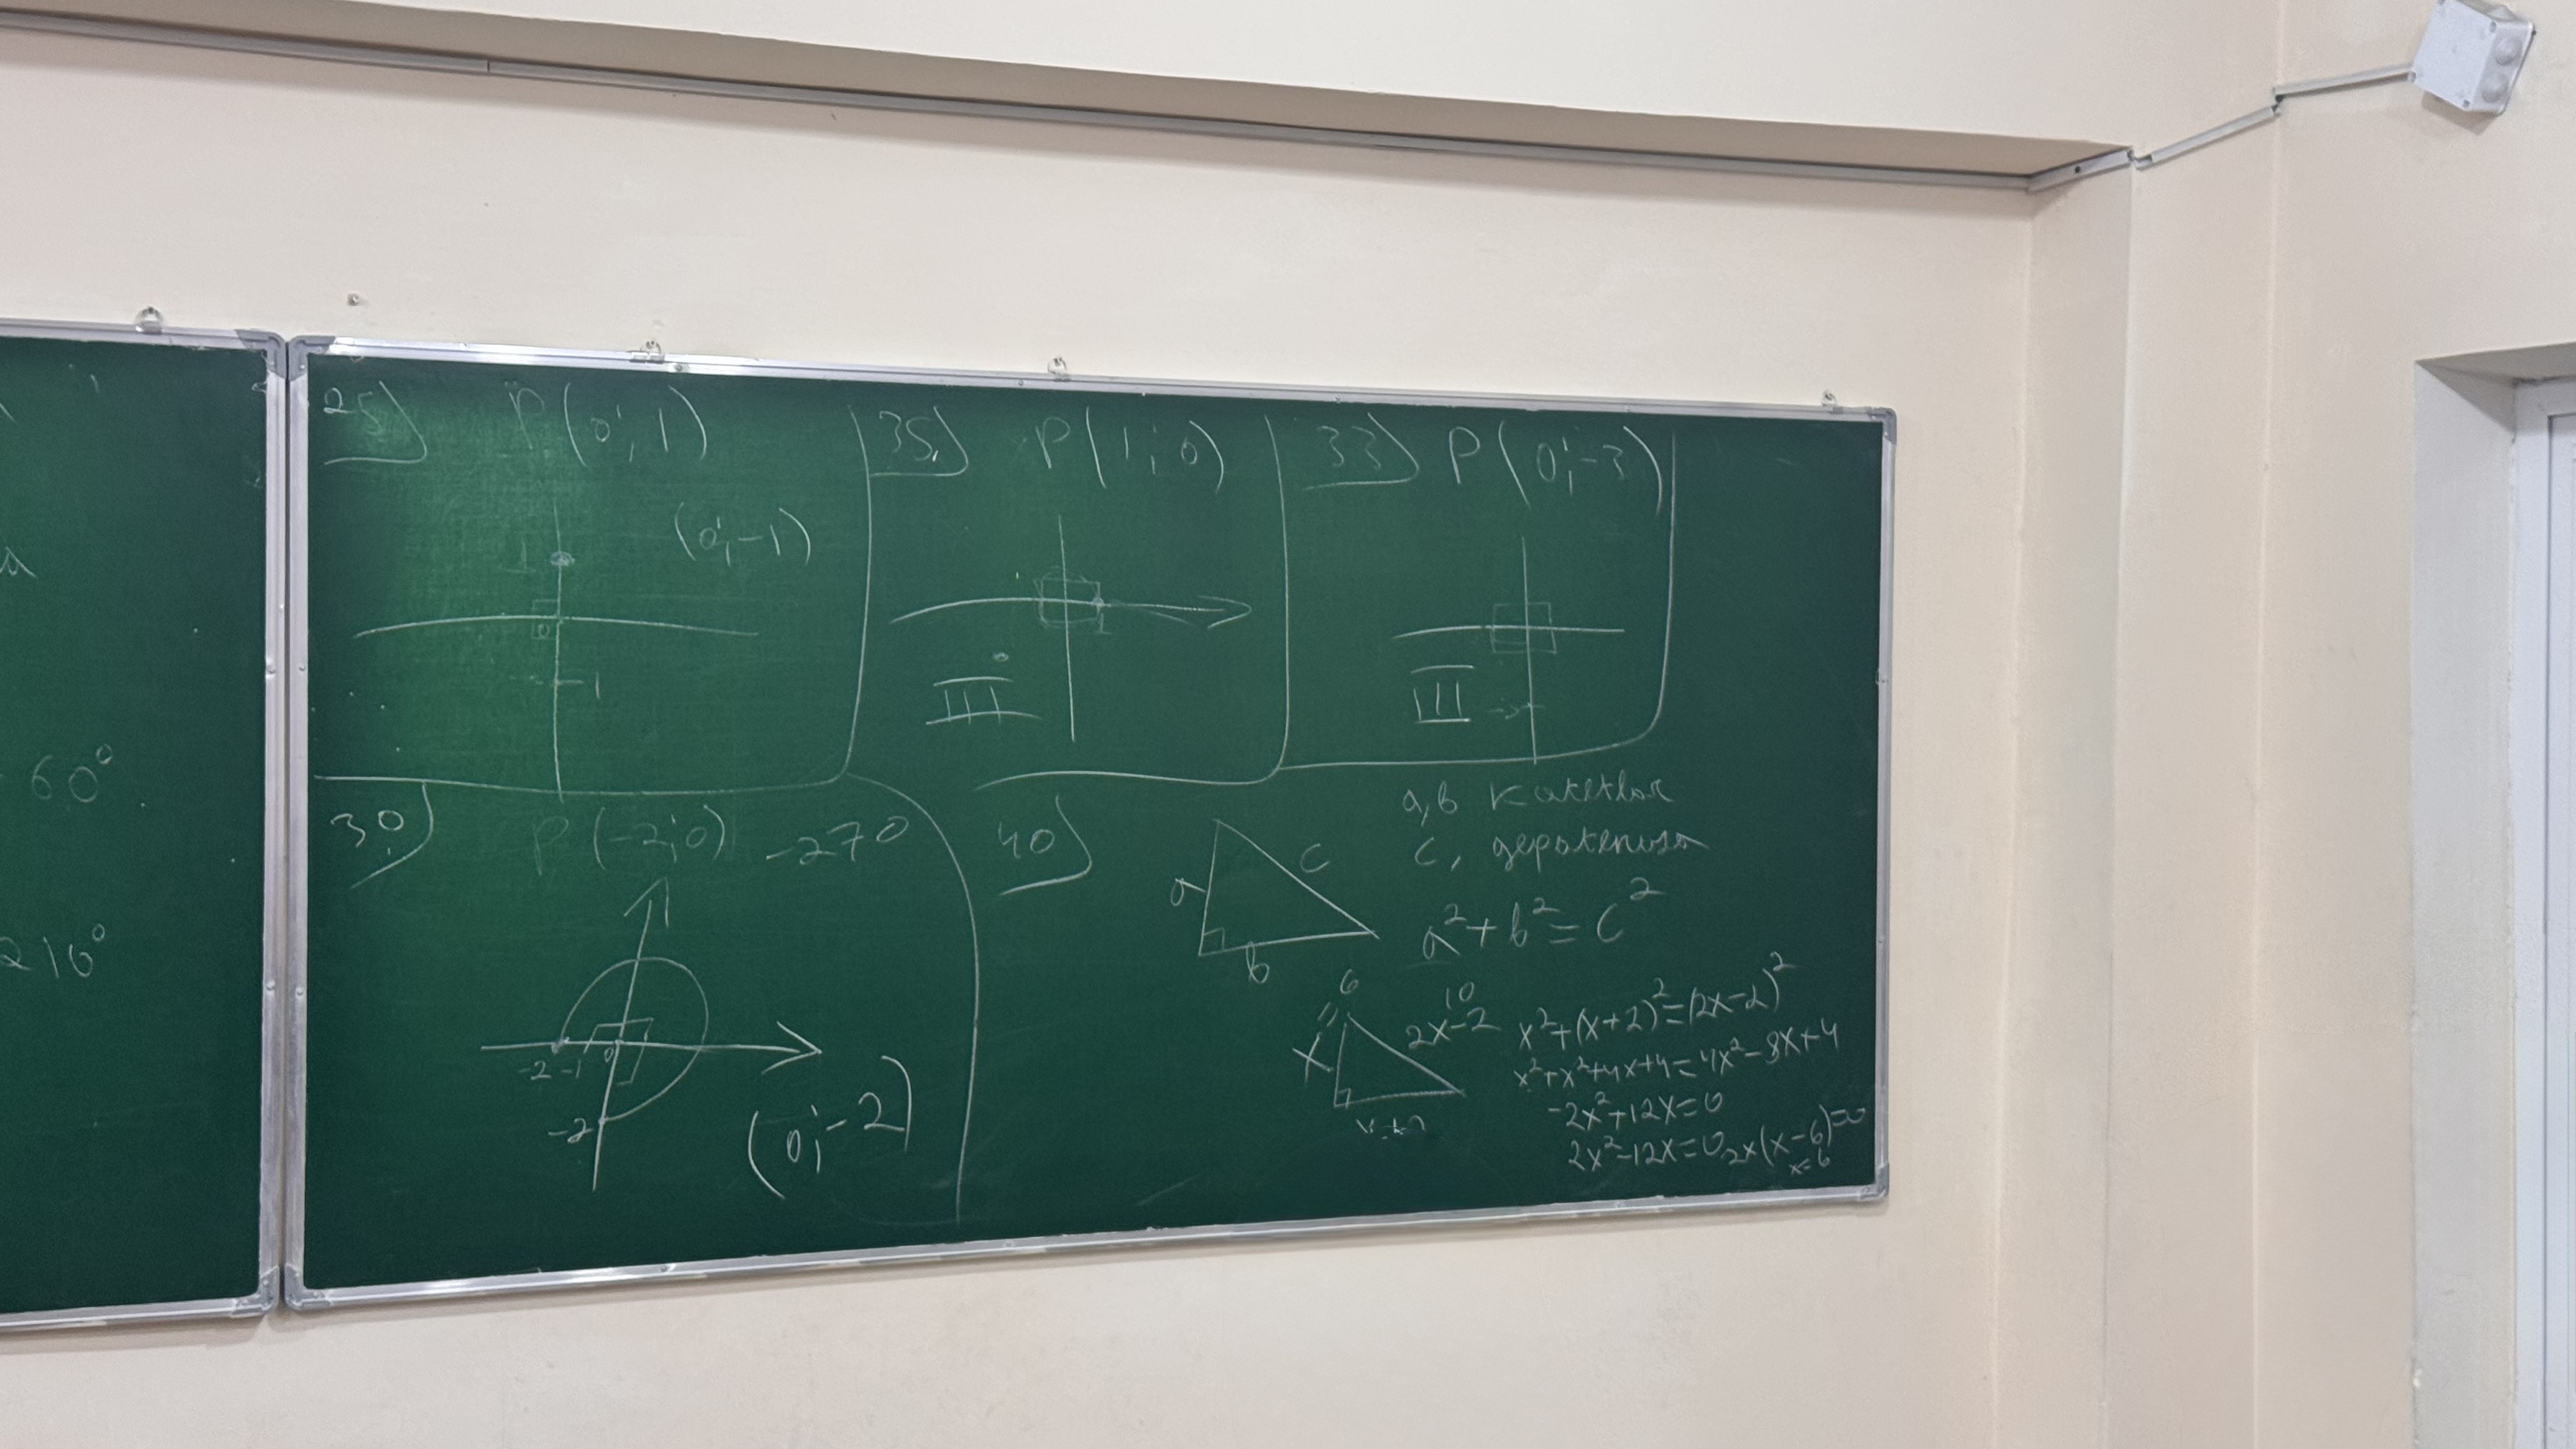 60°
216°
25)
P(0;1)
(0;-1)
1
0
-1
35)
P(1;0)
1
III
33)
P(0;-3)
III
-3
30)
P(-2;0) -270
-2 -1 0
-2
(0;-2)
40)
a
c
b
a,b katetlar
c, gepotenuza
a²+b²=c²
6
10
x
2x-2
x+2
x²+(x+2)²=(2x-2)²
x²+x²+4x+4=4x²-8x+4
-2x²+12x=0
2x²-12x=0 2x(x-6)=0
x=6